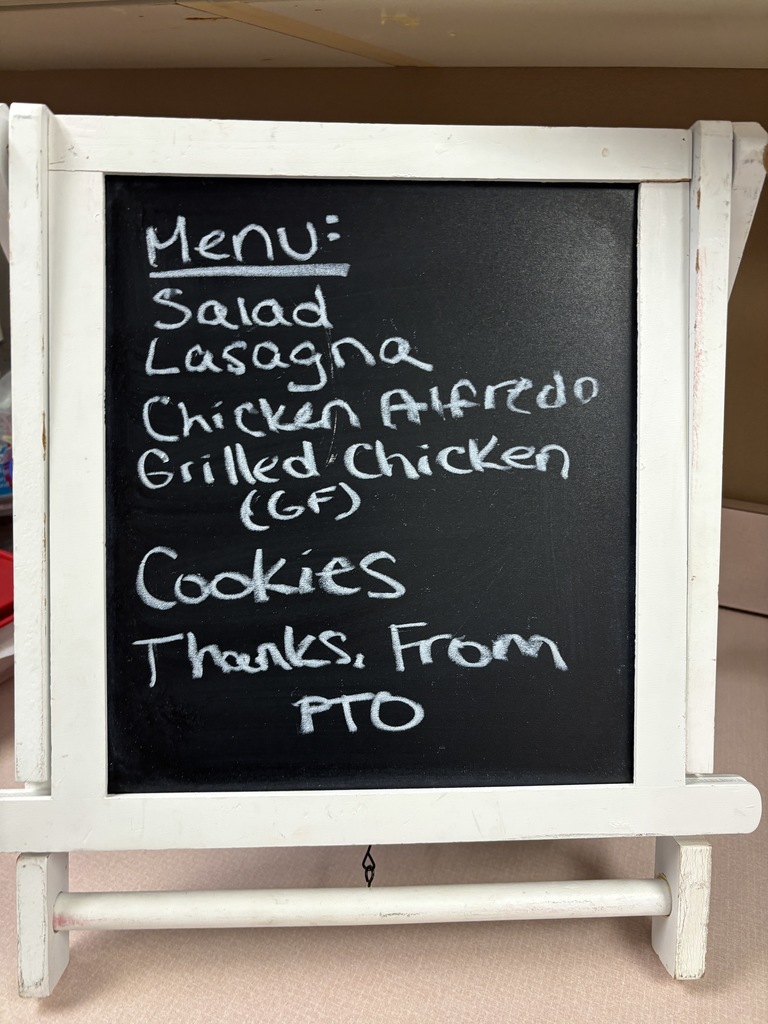 Menu:
Salad
Lasagna
Chicken Alfredo
Grilled Chicken
(GF)
Cookies
Thanks, From
PTO